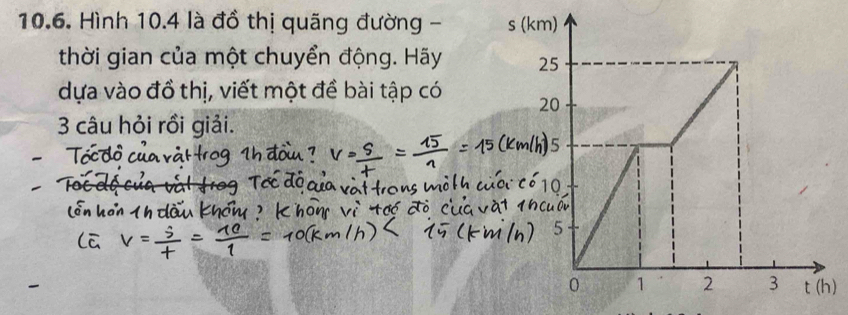 10.6. Hình 10.4 là đồ thị quãng đường –
thời gian của một chuyển động. Hãy
dựa vào đồ thị, viết một đề bài tập có
3 câu hỏi rồi giải.
- Tốc độ của vật trog 1h đầu? v = s/t = 15/1 = 15 (km/h)
- Tốc độ của vật trog Tốc độ của vật trong một h cuối có
lớn hơn 1h đầu không? Không vì tốc độ của vật 1h cuối
là v = s/t = 10/1 = 10(km/h) < 15 (km/h)
-
s (km)
25
20
5
10
5
0 1 2 3 t (h)